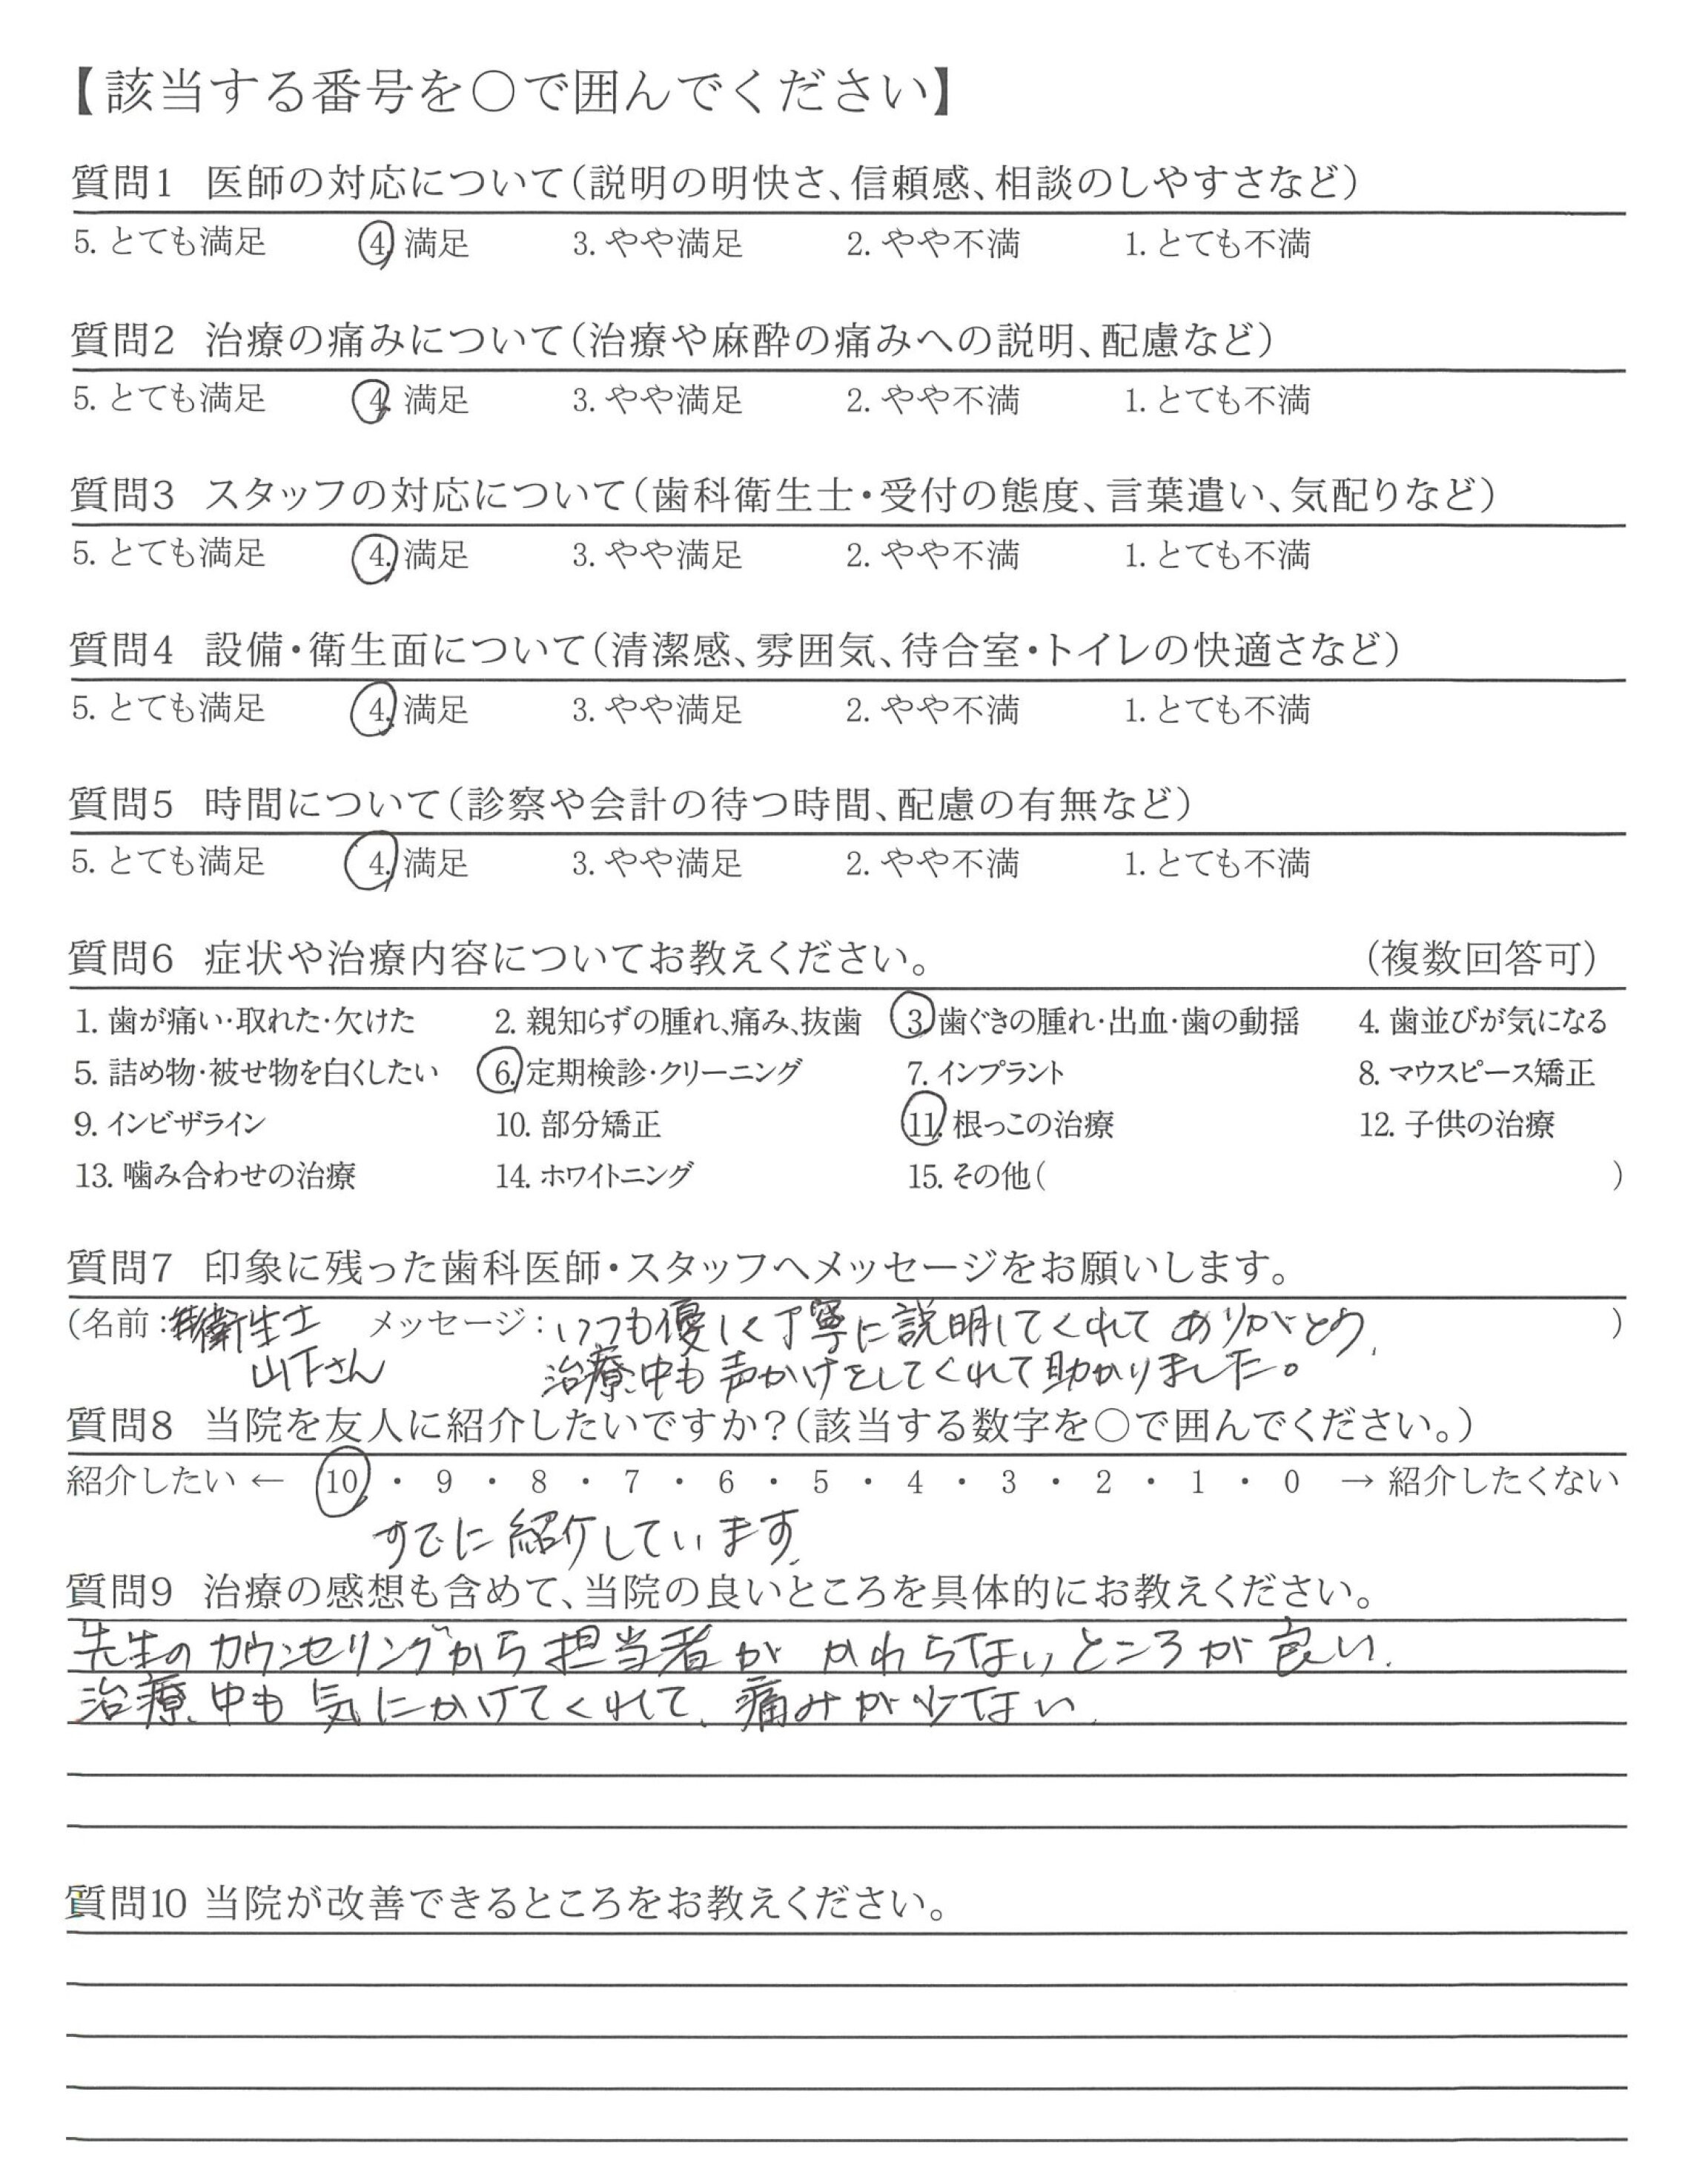 【該当する番号を○で囲んでください】
質問1 医師の対応について(説明の明快さ、信頼感、相談のしやすさなど)
5. とても満足 4. 満足 3. やや満足 2. やや不満 1. とても不満
質問2 治療の痛みについて(治療や麻酔の痛みへの説明、配慮など)
5. とても満足 4. 満足 3. やや満足 2. やや不満 1. とても不満
質問3 スタッフの対応について(歯科衛生士・受付の態度、言葉遣い、気配りなど)
5. とても満足 4. 満足 3. やや満足 2. やや不満 1. とても不満
質問4 設備・衛生面について(清潔感、雰囲気、待合室・トイレの快適さなど)
5. とても満足 4. 満足 3. やや満足 2. やや不満 1. とても不満
質問5 時間について(診察や会計の待つ時間、配慮の有無など)
5. とても満足 4. 満足 3. やや満足 2. やや不満 1. とても不満
質問6 症状や治療内容についてお教えください。 (複数回答可)
1. 歯が痛い・取れた・欠けた 2. 親知らずの腫れ、痛み、抜歯 3. 歯ぐきの腫れ・出血・歯の動揺 4. 歯並びが気になる
5. 詰め物・被せ物を白くしたい 6. 定期検診・クリーニング 7. インプラント 8. マウスピース矯正
9. インビザライン 10. 部分矯正 11. 根っこの治療 12. 子供の治療
13. 噛み合わせの治療 14. ホワイトニング 15. その他( )
質問7 印象に残った歯科医師・スタッフへメッセージをお願いします。
(名前:衛生士 メッセージ:いつも優しく丁寧に説明してくれてありがとう. )
山下さん 治療中も声かけをしてくれて助かりました。
質問8 当院を友人に紹介したいですか?(該当する数字を○で囲んでください。)
紹介したい ← 10 ・ 9 ・ 8 ・ 7 ・ 6 ・ 5 ・ 4 ・ 3 ・ 2 ・ 1 ・ 0 → 紹介したくない
すでに紹介しています.
質問9 治療の感想も含めて、当院の良いところを具体的にお教えください。
先生のカウンセリングから担当者が かわらないところが良い.
治療中も気にかけてくれて、痛みが少ない.
質問10 当院が改善できるところをお教えください。